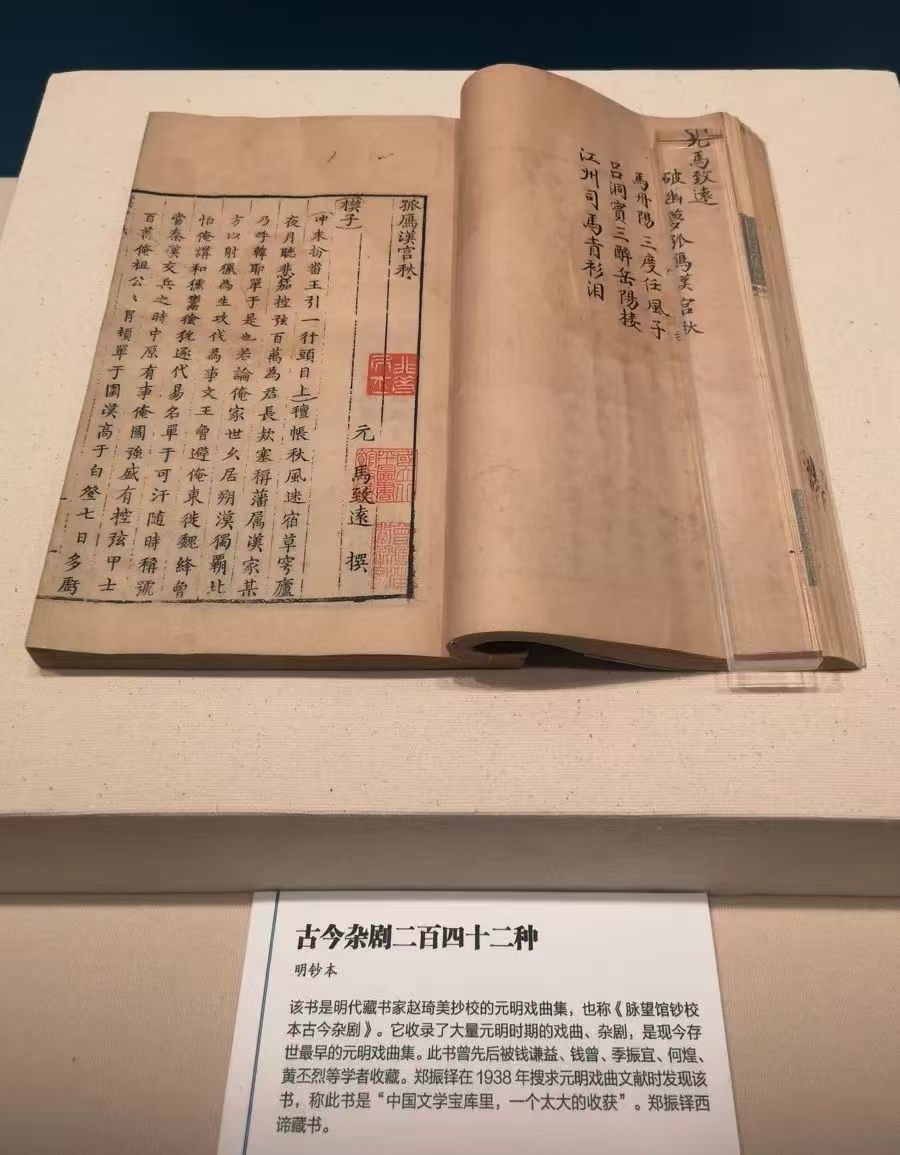 元馬致遠
破幽夢孤鴈漢宮秋
馬丹陽三度任風子
呂洞賓三醉岳陽楼
江州司馬青衫泪
孤鴈漢宮秋
元 馬致遠 撰
楔子
冲末扮畨王引一行頭目上氊帳秋風迷宿草穹廬
夜月聽悲笳控弦百萬為君長欵塞稱藩属漢家某
乃呼韓耶單于是也若論俺家世乆居朔漠獨覇北
方以射獵為生攻伐為事文王曾避俺東徙魏絳曾
怕俺講和獯鬻獫狁逐代易名單于可汗随時稱號
當秦漢交兵之時中原有事俺國強盛有控弦甲士
百萬俺祖公〻冐頓單于圍漢高于白登七日多虧
古今杂剧二百四十二种
明钞本
该书是明代藏书家赵琦美抄校的元明戏曲集，也称《脉望馆钞校
本古今杂剧》。它收录了大量元明时期的戏曲、杂剧，是现今存
世最早的元明戏曲集。此书曾先后被钱谦益、钱曾、季振宜、何煌、
黄丕烈等学者收藏。郑振铎在1938年搜求元明戏曲文献时发现该
书，称此书是“中国文学宝库里，一个太大的收获”。郑振铎西
谛藏书。